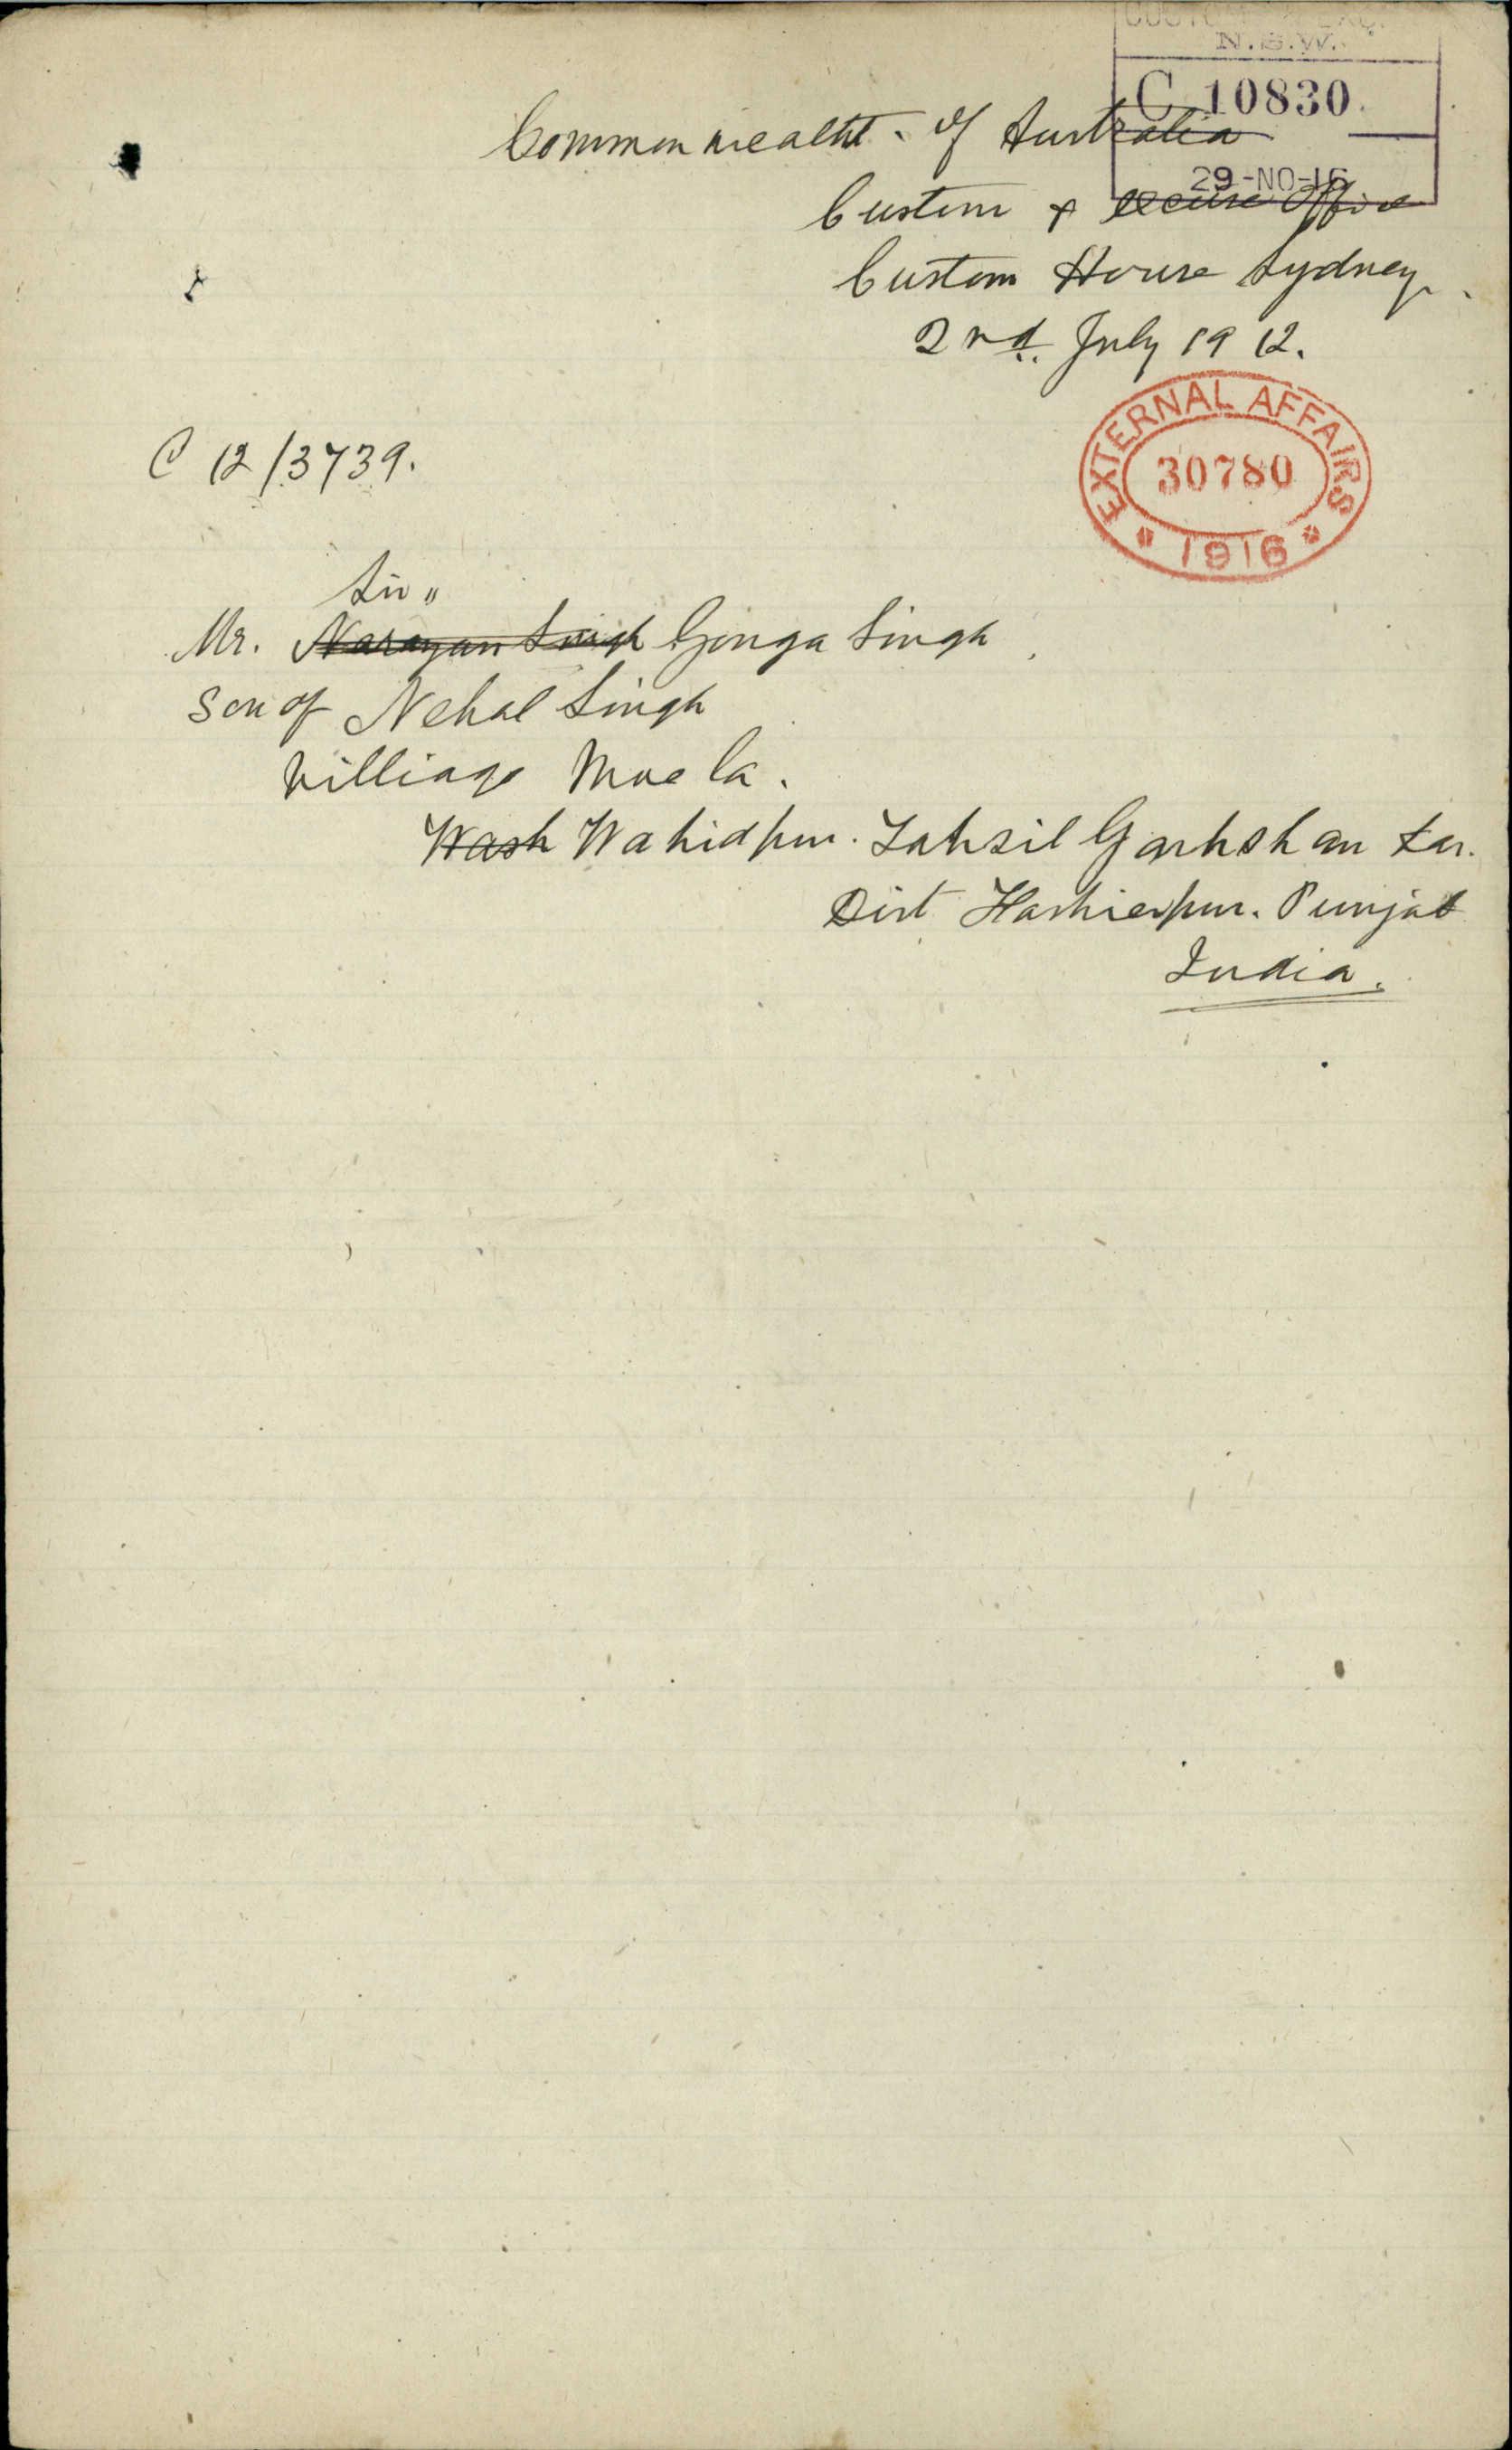 CUSTOMS & EXC.
N.S.W.
C 10830.
29-NO-16
Commonwealth. of Australia
Custom & excise Office
Custom House Sydney.
2nd. July 1912.
EXTERNAL AFFAIRS
30780
1916
C 12/3739.
Sir "
Mr. Narayan Singh Gonga Singh
Son of Nehal Singh
Villiage Moela.
Wash Wahidpur. Tahsil Garhshan kar.
Dist Hashierpur. Punjab
India.